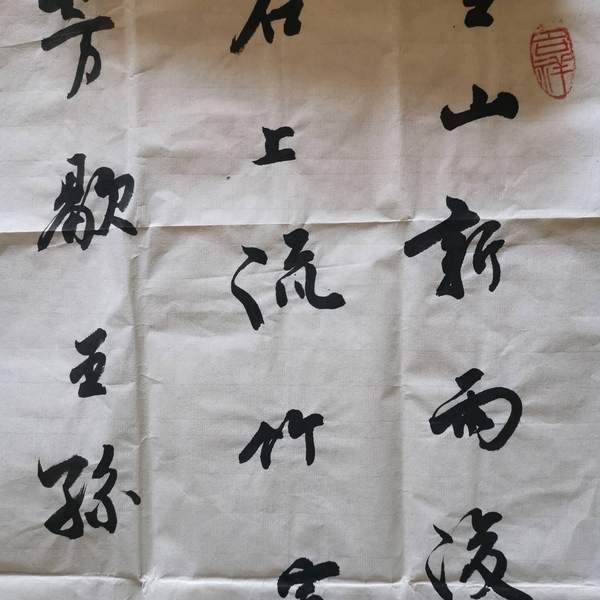 吉祥
山新雨後
石上流竹
芳歇王孫